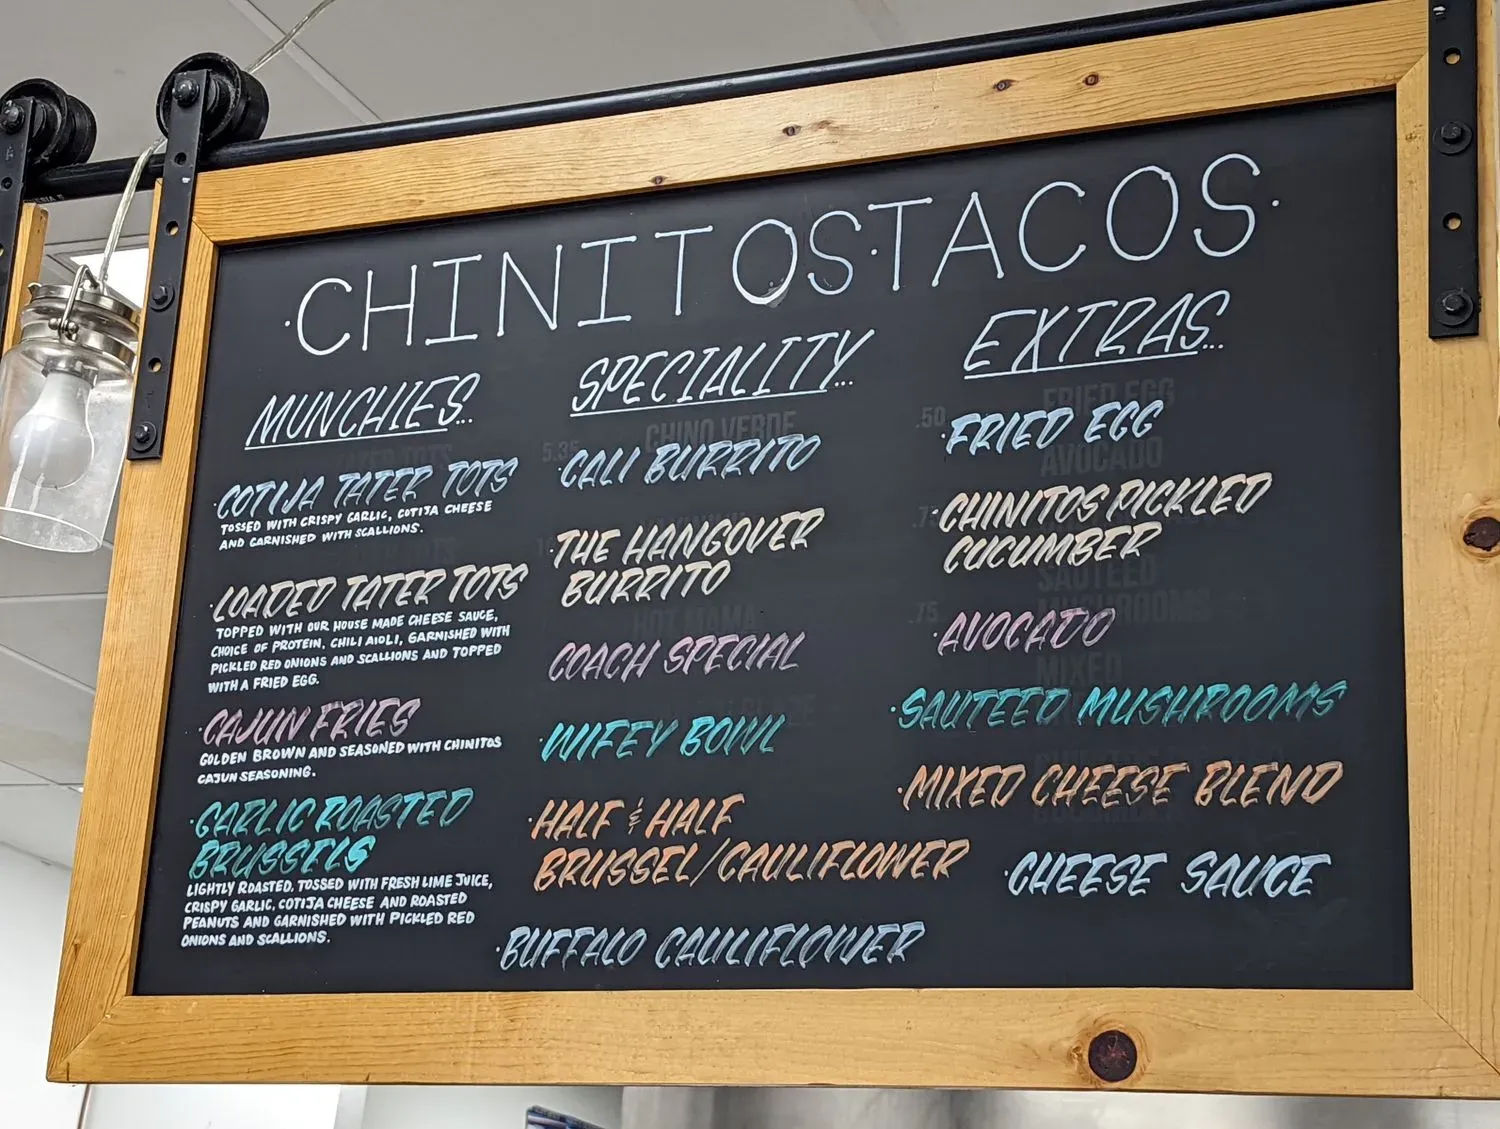 ·CHINITOS·TACOS·
MUNCHIES...
·COTIJA TATER TOTS
TOSSED WITH CRISPY GARLIC, COTIJA CHEESE
AND GARNISHED WITH SCALLIONS.
·LOADED TATER TOTS
TOPPED WITH OUR HOUSE MADE CHEESE SAUCE,
CHOICE OF PROTEIN, CHILI AIOLI, GARNISHED WITH
PICKLED RED ONIONS AND SCALLIONS AND TOPPED
WITH A FRIED EGG.
·CAJUN FRIES
GOLDEN BROWN AND SEASONED WITH CHINITOS
CAJUN SEASONING.
·GARLIC ROASTED
BRUSSELS
LIGHTLY ROASTED, TOSSED WITH FRESH LIME JUICE,
CRISPY GARLIC, COTIJA CHEESE AND ROASTED
PEANUTS AND GARNISHED WITH PICKLED RED
ONIONS AND SCALLIONS.
SPECIALITY...
5.35
CHINO VERDE
·CALI BURRITO
·THE HANGOVER
BURRITO
HOT MAMA
COACH SPECIAL
·WIFEY BOWL
·HALF & HALF
BRUSSEL/CAULIFLOWER
·BUFFALO CAULIFLOWER
EXTRAS...
.50
FRIED EGG
·FRIED EGG
AVOCADO
·CHINITOS PICKLED
CUCUMBER
SAUTEED
MUSHROOMS
.75
·AVOCADO
MIXED
·SAUTEED MUSHROOMS
·MIXED CHEESE BLEND
·CHEESE SAUCE